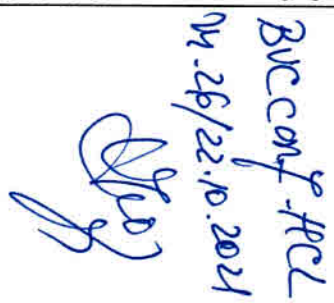 BVC conf. HCL
nr. 26/22.10.2021